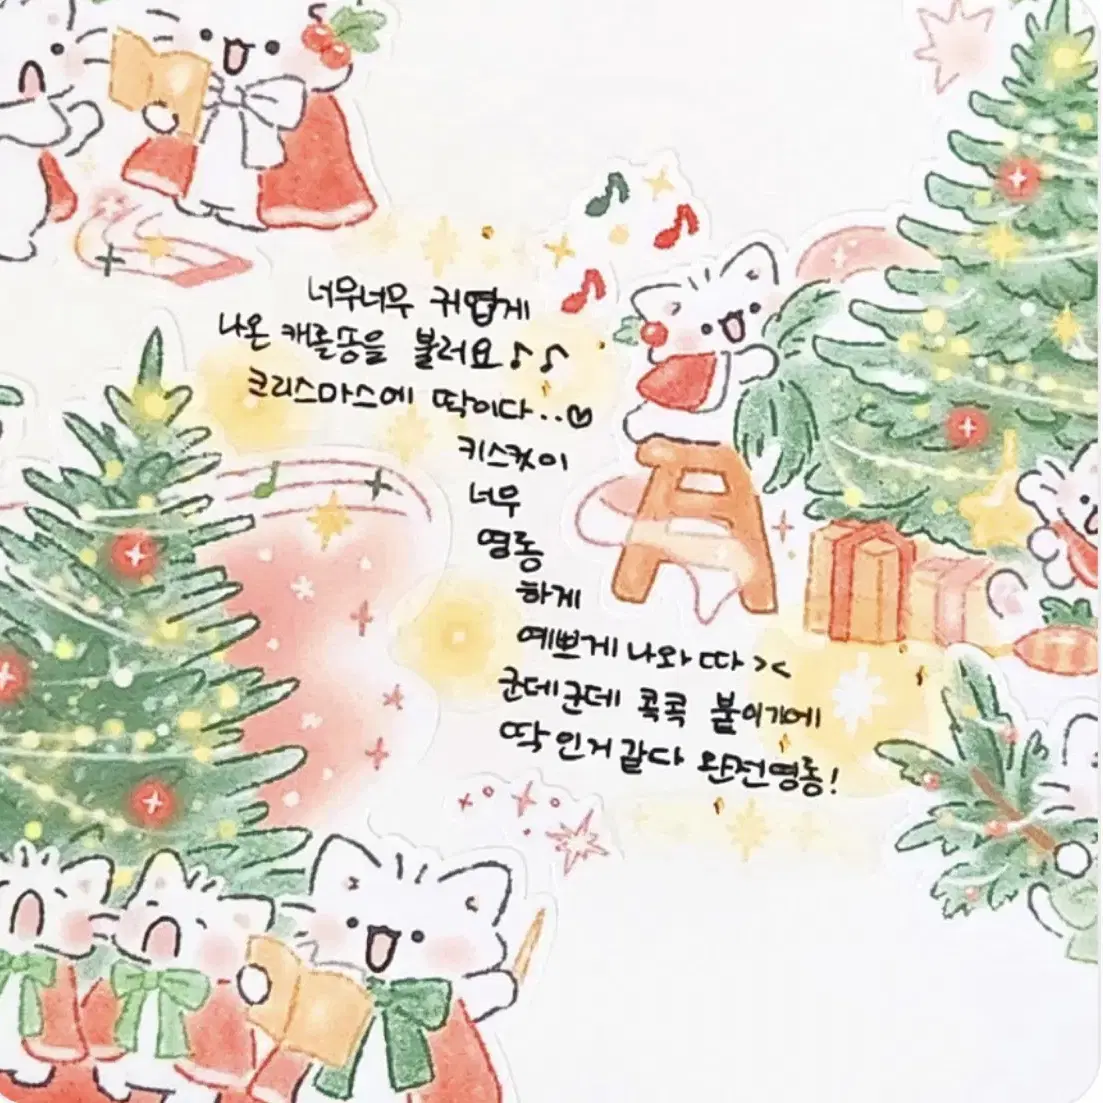 너무너무 귀엽게
나온 캐롤송을 불러요♪♪
크리스마스에 딱이다..♡
키스컷이
너무
영롱
하게
예쁘게 나와따 ><
군데군데 콕콕 붙이기에
딱인거같다 완전영롱!